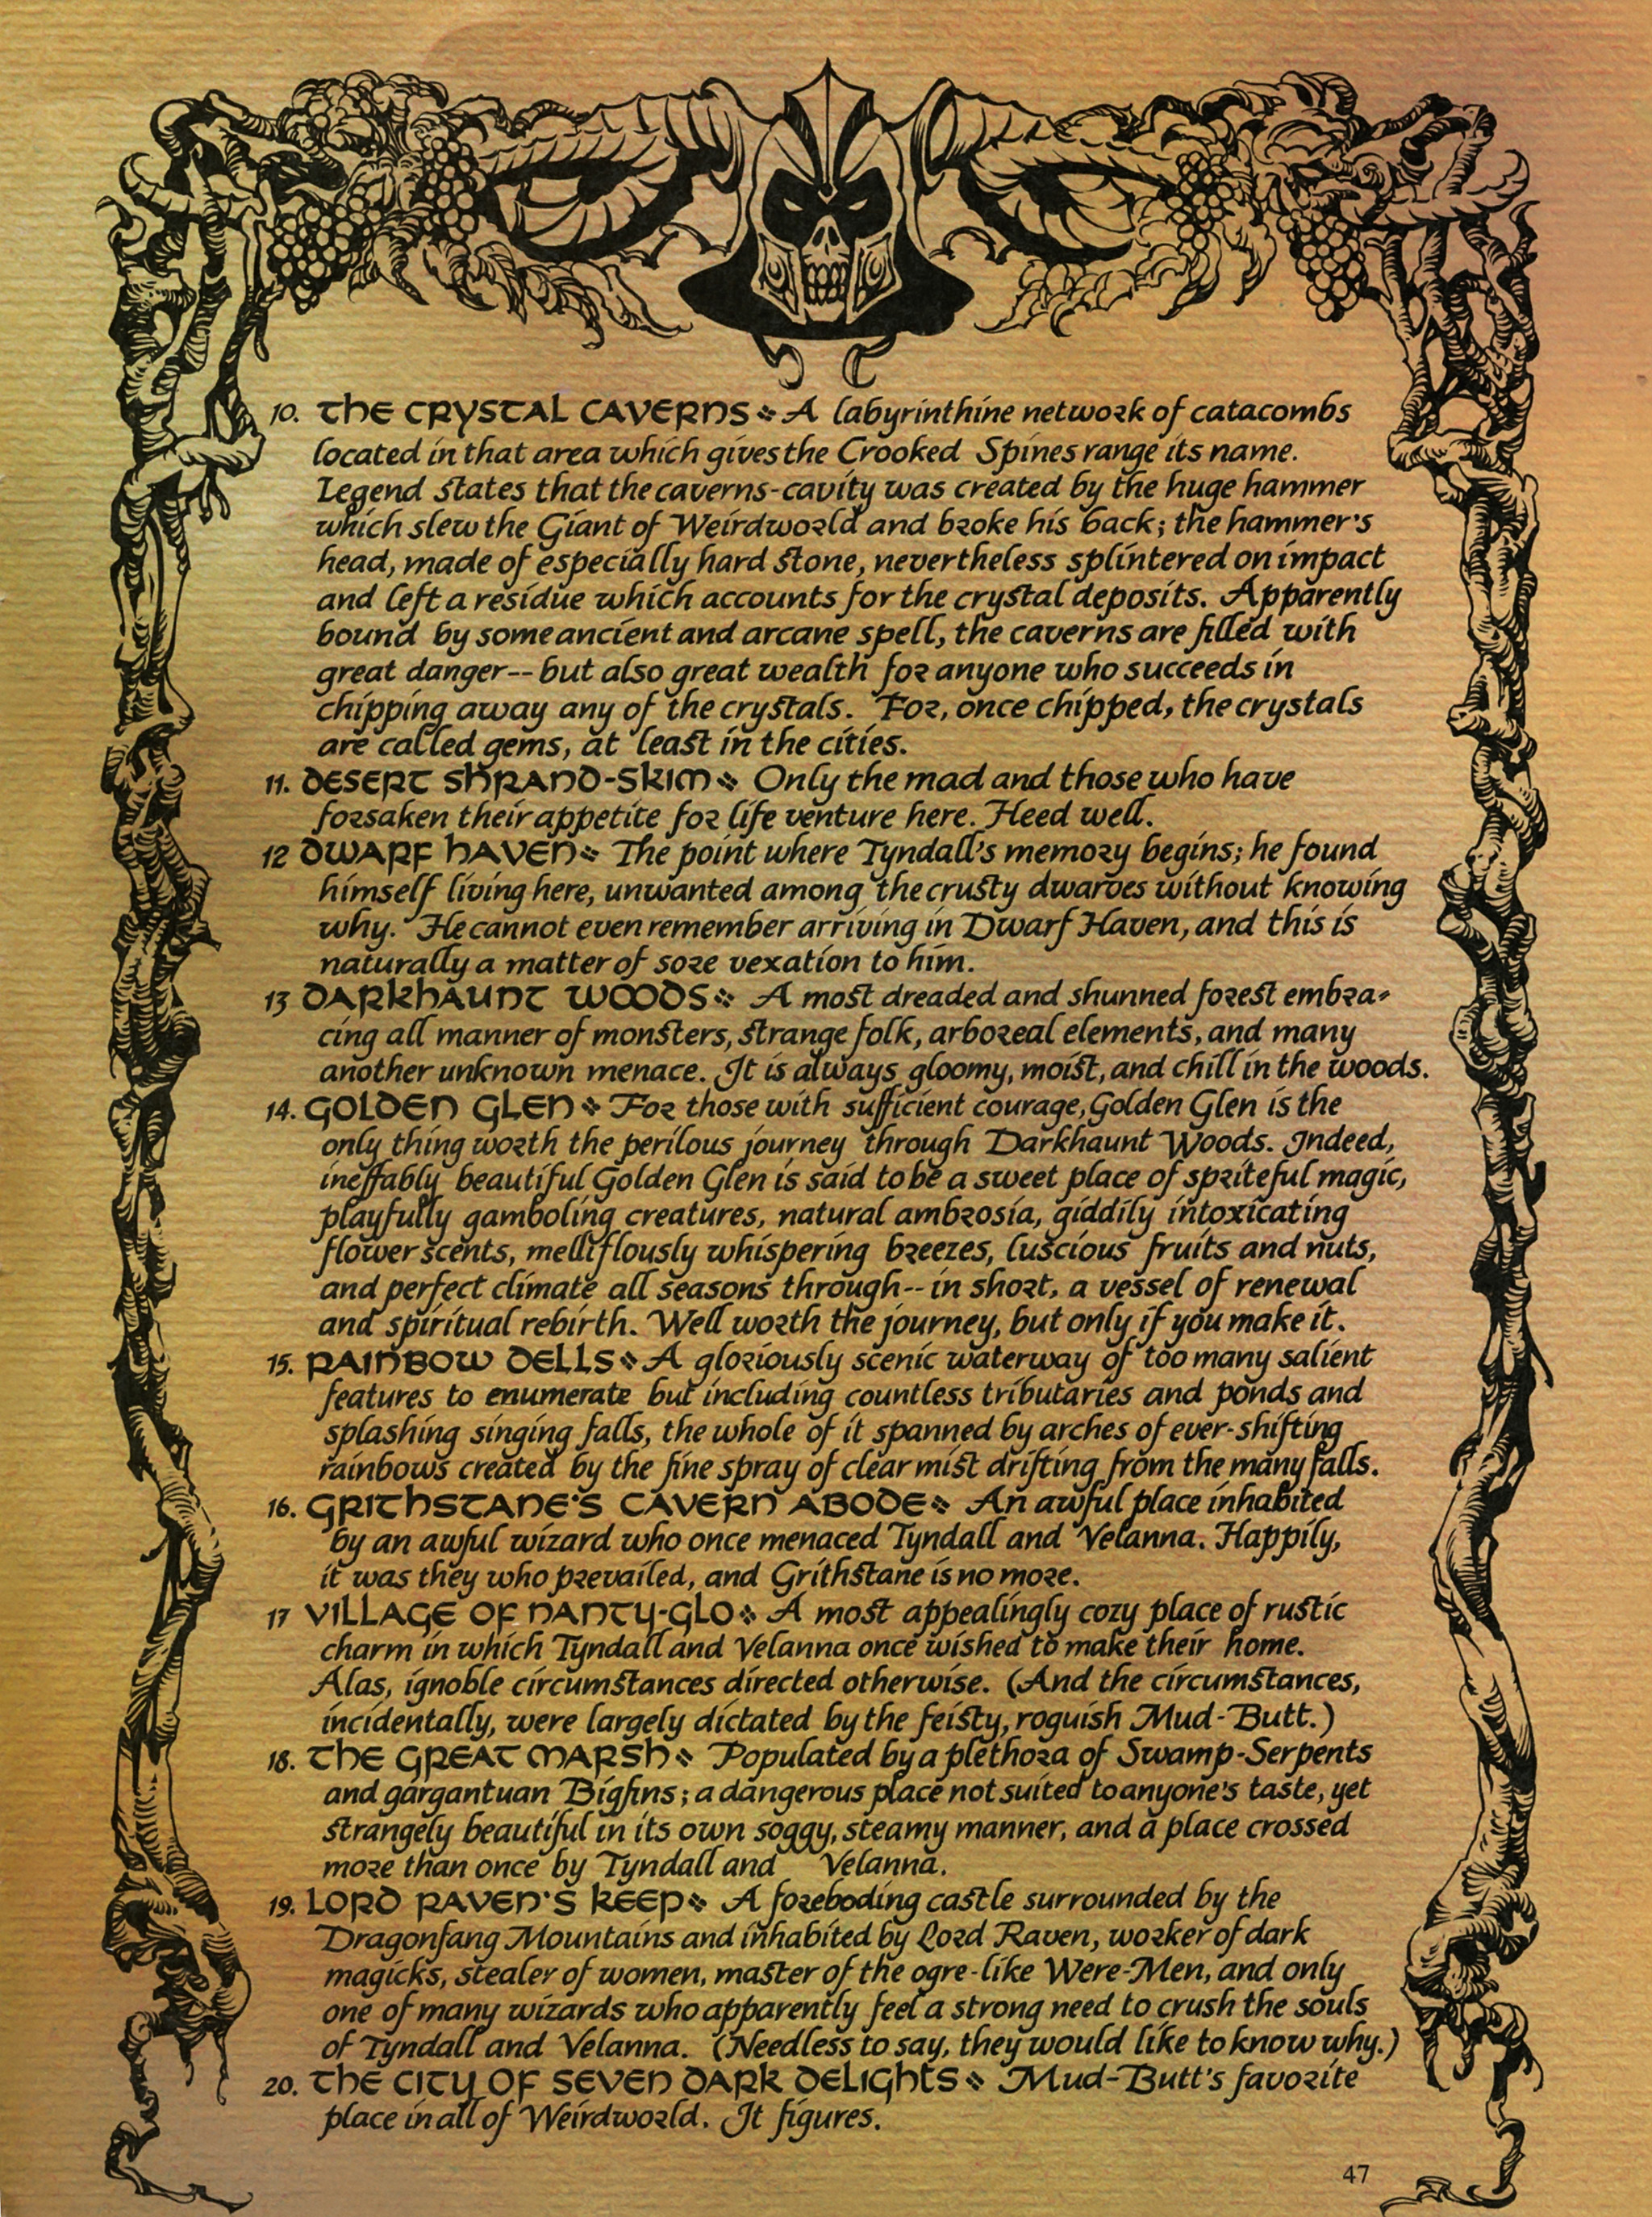 10. THE CRYSTAL CAVERNS ❖ A labyrinthine network of catacombs
located in that area which gives the Crooked Spines range its name.
Legend states that the caverns-cavity was created by the huge hammer
which slew the Giant of Weirdworld and broke his back; the hammer's
head, made of especially hard stone, nevertheless splintered on impact
and left a residue which accounts for the crystal deposits. Apparently
bound by some ancient and arcane spell, the caverns are filled with
great danger--but also great wealth for anyone who succeeds in
chipping away any of the crystals. For, once chipped, the crystals
are called gems, at least in the cities.
11. DESERT SHRAND-SKIM ❖ Only the mad and those who have
forsaken their appetite for life venture here. Heed well.
12 DWARF HAVEN ❖ The point where Tyndall's memory begins; he found
himself living here, unwanted among the crusty dwarves without knowing
why. He cannot even remember arriving in Dwarf Haven, and this is
naturally a matter of sore vexation to him.
13 DARKHAUNT WOODS ❖ A most dreaded and shunned forest embra-
cing all manner of monsters, strange folk, arboreal elements, and many
another unknown menace. It is always gloomy, moist, and chill in the woods.
14. GOLDEN GLEN ❖ For those with sufficient courage, Golden Glen is the
only thing worth the perilous journey through Darkhaunt Woods. Indeed,
ineffably beautiful Golden Glen is said to be a sweet place of spriteful magic,
playfully gamboling creatures, natural ambrosia, giddily intoxicating
flower scents, melliflously whispering breezes, luscious fruits and nuts,
and perfect climate all seasons through--in short, a vessel of renewal
and spiritual rebirth. Well worth the journey, but only if you make it.
15. RAINBOW DELLS ❖ A gloriously scenic waterway of too many salient
features to enumerate but including countless tributaries and ponds and
splashing singing falls, the whole of it spanned by arches of ever-shifting
rainbows created by the fine spray of clear mist drifting from the many falls.
16. GRITHSTANE'S CAVERN ABODE ❖ An awful place inhabited
by an awful wizard who once menaced Tyndall and Velanna. Happily,
it was they who prevailed, and Grithstane is no more.
17 VILLAGE OF NANTY-GLO ❖ A most appealingly cozy place of rustic
charm in which Tyndall and Velanna once wished to make their home.
Alas, ignoble circumstances directed otherwise. (And the circumstances,
incidentally, were largely dictated by the feisty, roguish Mud-Butt.)
18. THE GREAT MARSH ❖ Populated by a plethora of Swamp-Serpents
and gargantuan Bigfins; a dangerous place not suited to anyone's taste, yet
strangely beautiful in its own soggy, steamy manner, and a place crossed
more than once by Tyndall and Velanna.
19. LORD RAVEN'S KEEP ❖ A foreboding castle surrounded by the
Dragonfang Mountains and inhabited by Lord Raven, worker of dark
magicks, stealer of women, master of the ogre-like Were-Men, and only
one of many wizards who apparently feel a strong need to crush the souls
of Tyndall and Velanna. (Needless to say, they would like to know why.)
20. THE CITY OF SEVEN DARK DELIGHTS ❖ Mud-Butt's favorite
place in all of Weirdworld. It figures.
47